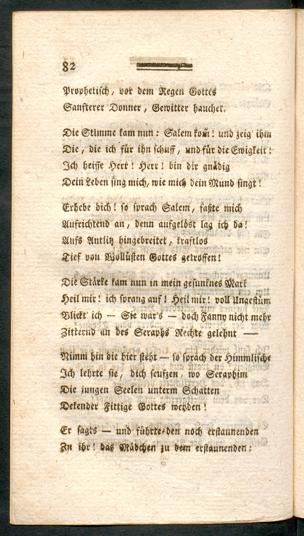 82
Prophetisch, vor dem Regen Gottes
Sanfterer Donner, Gewitter hauchet.
Die Stimme kam nun: Salem kom̄! und zeig ihm
Die, die ich für ihn schuff, und für die Ewigkeit!
Ich heisse Herr! Herr! bin dir gnädig
Dein Leben sing mich, wie mich dein Mund singt!
Erhebe dich! so sprach Salem, faßte mich
Aufrichtend an, denn aufgelöst lag ich da!
Aufs Antlitz hingebreitet, kraftlos
Tief von Wollüsten Gottes getroffen!
Die Stärke kam nun in mein gesunknes Mark
Heil mir! ich sprang auf! Heil mir! voll Ungestüm
Blickt ich — Sie war's — doch Fanny nicht mehr
Zitternd an des Seraphs Rechte gelehnt —
Nimm hin die hier steht — so sprach der Himmlische
Ich lehrte sie, dich seufzen, wo Seraphim
Die jungen Seelen unterm Schatten
Deckender Fittige Gottes werden!
Er sagts — und führte den noch erstaunenden
Zu ihr! das Mädchen zu dem erstaunenden: